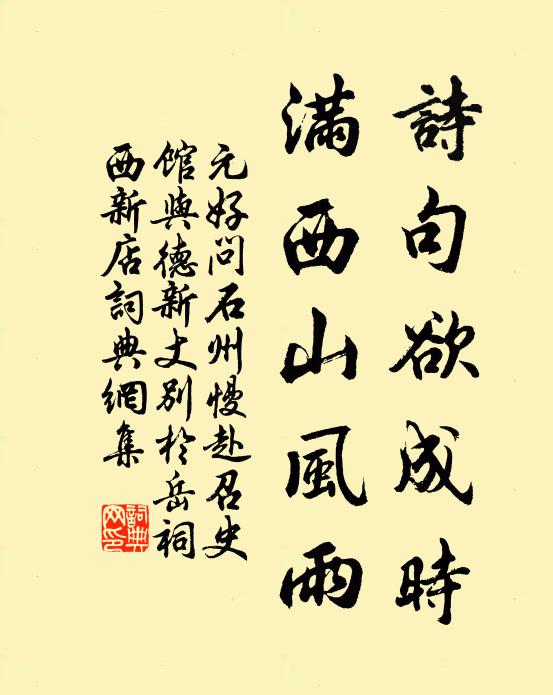 詩句欲成時
滿西山風雨
元好问石州慢赴召史
馆與德新丈别於岳祠
西新店詞典網集
詞典网印